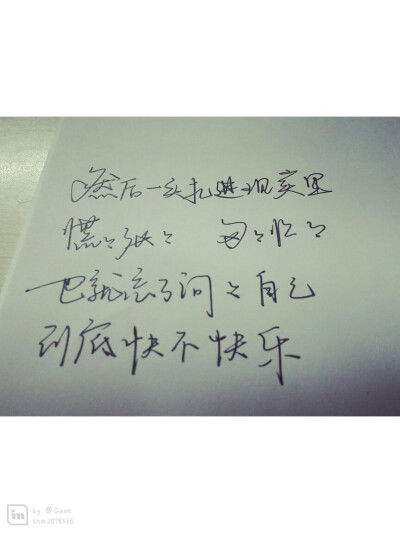 然后一头扎进现实里
慌々张々 匆々忙々
也就忘了问々自己
到底快不快乐
in by